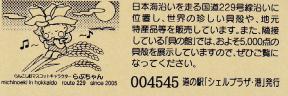 日本海沿いを走る国道229号線沿いに
位置し、世界の珍しい貝殻や、地元
特産品等を販売しています。また、隣接
している「貝の館」では、およそ5,000点の
貝殻を展示しておりますので、ぜひご覧に
なってください。
りんごの里マスコットキャラクター らぶちゃん
michinoeki in hokkaido route 229 since 2008
004545 道の駅「シェルプラザ・港」発行